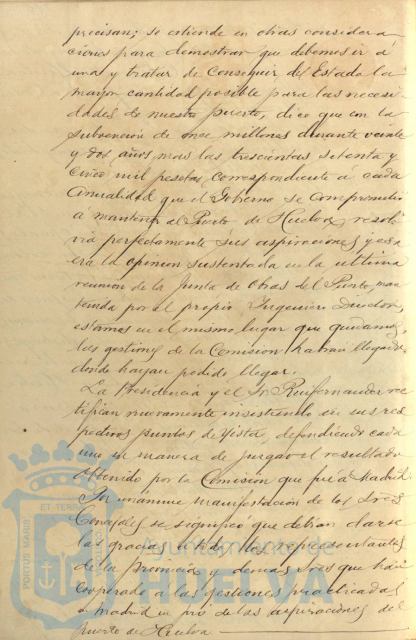 precisan; se estiende en otras considera
ciones para demostrar que debemos ir á
una y tratar de conseguir del Estado la
mayor cantidad posible para las necesi
dades de nuestro puerto, dice que con la
subvención de once millones durante veinte
y dos años, mas las trescientas setenta y
cinco mil pesetas correspondiente á cada
anualidad que el Gobierno se comprometió
a mantener al Puerto de Huelva, resol
via perfectamente sus aspiraciones y esa
era la opinion sustentada en la ultima
reunion de la Junta de Obras del Puerto, man
tenida por el propio Ingeniero Director,
estamos en el mismo lugar que
las gestiones de la Comision habran llegado
donde hayan podido llegar.
La Presidencia y el Sr. Ruifernandez rec
tifican nuevamente insistiendo en sus res
pectivos puntos de vista, defendiendo cada
uno su manera de juzgar el resultado
obtenido por la Comision que fué á Madrid.
Por unánime manifestacion de los Sres
Concejales se significó que debian darse
las gracias á todos los representantes
de la provincia y demas Sres que han
cooperado a las gestiones practicadas
en Madrid en pró de las aspiraciones del
Puerto de Huelva
PORTUS MARIS ET TERRAE
Ayuntamiento de
HUELVA